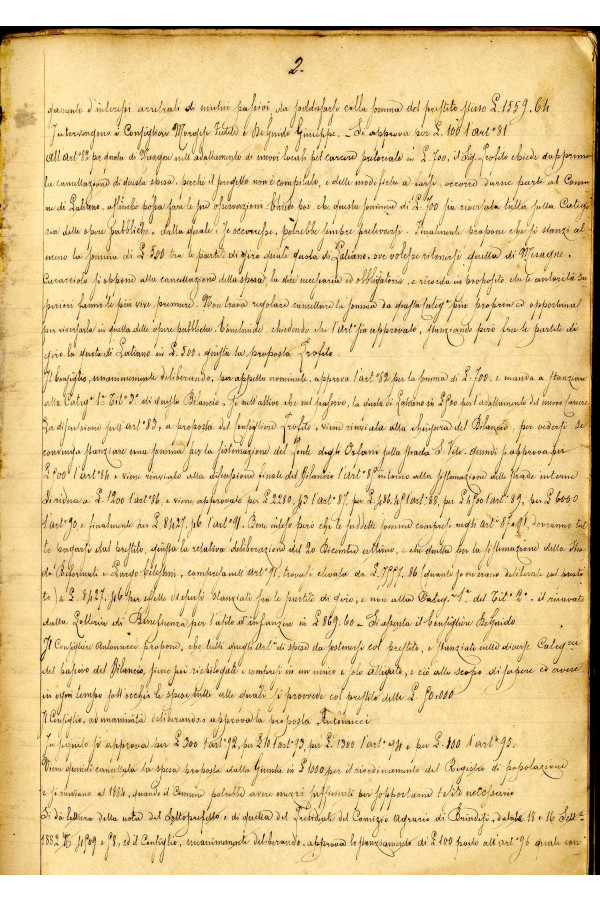 2.
gamento d'interessi arretrati di mutui passivi, da soddisfarsi colla somma del prestito stesso £. 1559.64
Intervengono i Consiglieri Morgese Fedele e Belfiudo Giuseppe. - Si approva per £. 100 l'art.º 81
All'art.º 82 per quota di Mesagne nell'adattamento di nuovi locali pel carcere pretoriale in £. 700, il Sig. Profilo chiede dapprima
la cancellazione di questa spesa, perché il progetto non è completato, e delle modifiche a farsi, occorre darne parte al Comu
ne di Latiano, affinché possa fare le sue osservazioni. Chiede poi che questa somma di £. 700 sia riversata tutta sulla Catego
ria delle opere pubbliche, dalla quale, se occorresse, potrebbe sempre prelevarsi. Finalmente propone che si stanzi al
meno la somma di £. 500 tra le partite di giro quale quota di Latiano, ove volesse ritenersi quella di Mesagne.
Caracciolo si oppone alla cancellazione della spesa, la dice necessaria ed obbligatoria, e ricorda in proposito che le autorità su
periori fanno le più vive premure. Non trova regolare cancellare la somma da questa categ.ª più propria ed opportuna
per riversarla in quella delle opere pubbliche. Conclude, chiedendo che l'art.º sia approvato, stanziando però fra le partite di
giro la quota di Latiano in £. 500, giusta la proposta Profilo.
Il Consiglio, unanimemente deliberando, per appello nominale, approva l'art.º 82 per la somma di £. 700, e manda a stanziare
alla Categ.ª 1ª Tit.º 3º di questo Bilancio, sì nell'attivo che nel passivo, la quota di Latiano in £ 500 per l'adattamento del nuovo carcere
La discussione sull'art.º 83, a proposta del Consigliere Profilo, viene rinviata alla chiusura del Bilancio, per vedersi se
convenga stanziare una somma per la sistemazione del ponte degli Orlani sulla strada S. Vito. Quindi si approva per
l'art.º 84 e viene rinviato alla discussione finale del Bilancio l'art.º 85 intorno alla sistemazione delle strade interne
Si riduce a £. 1200 l'art.º 86, e viene approvato per £ 2280.43 l'art.º 87, per £. 486. l'art.º 88, per £ l'art.º 89, per £
l'art.º 90, e finalmente per £. 8427.46 l'art.º 91. Bene inteso però che le suddette somme comprese negli art.ⁱ 87 e 91, dovranno tut
te pagarsi dal prestito, giusta la relativa deliberazione del 20 Dicembre ultimo, e che quella per la sistemazione della stra
da Riformati e Largo Celestini, compresa nell'art.º 91, trovasi elevata da £. 86 (quanto ne erano deliberate sul presti
to) a £. 8427.46 per effetto di essersi stanziato fra le partite di giro, e non alla Categ.ª 1ª del Tit.º 2º il ricavato
dalla Lotteria di Beneficenza per l'asilo d'infanzia in £ 869.60 - Si assenta il Consigliere Belfiudo
Il Consigliere Antonucci propone, che tutti quegli art.ⁱ di spesa da sostenersi col prestito, e stanziati nelle diverse Categ.ʳⁱᵉ
del passivo del Bilancio, siano poi riepilogati e compresi in un unico e solo allegato, e ciò allo scopo di sapere ed avere
in ogni tempo sott'occhio le spese tutte alle quali si provvede col prestito delle £. 50.000
Il Consiglio, ad unanimità deliberando, approva la proposta Antonucci
In seguito si approva per £ 300 l'art.º 92, per £ 10 l'art.º 93, per £. 1300 l'art.º 94 e per £. 100 l'art.º 95.
Viene quindi cancellata la spesa proposta dalla Giunta in £ 1000 per il riordinamento del Registro di popolazione
e si rinviano al 1884, quando il Comune potrebbe avere mezzi sufficienti per sopportarne le spese necessarie
Si dà lettura della nota del Sottoprefetto e di quella del Presidente del Comizio Agrario di Brindisi, data 18 e 16 Sett.ᵉ
1882 N. 4509 e 58, ed il Consiglio, unanimemente deliberando, approva lo stanziamento di £ 100 posto all'art.º 96 quale con